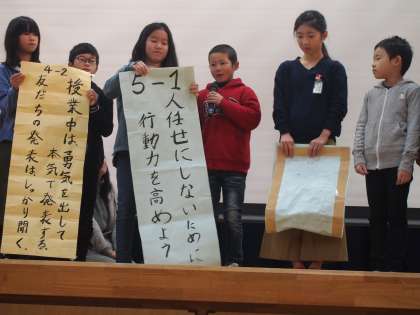 4-2
授業中は勇気を出して
本気で発表する、
友だちの発表はしっかり聞く、
5-1
人任せにしないために
行動力を高めよう